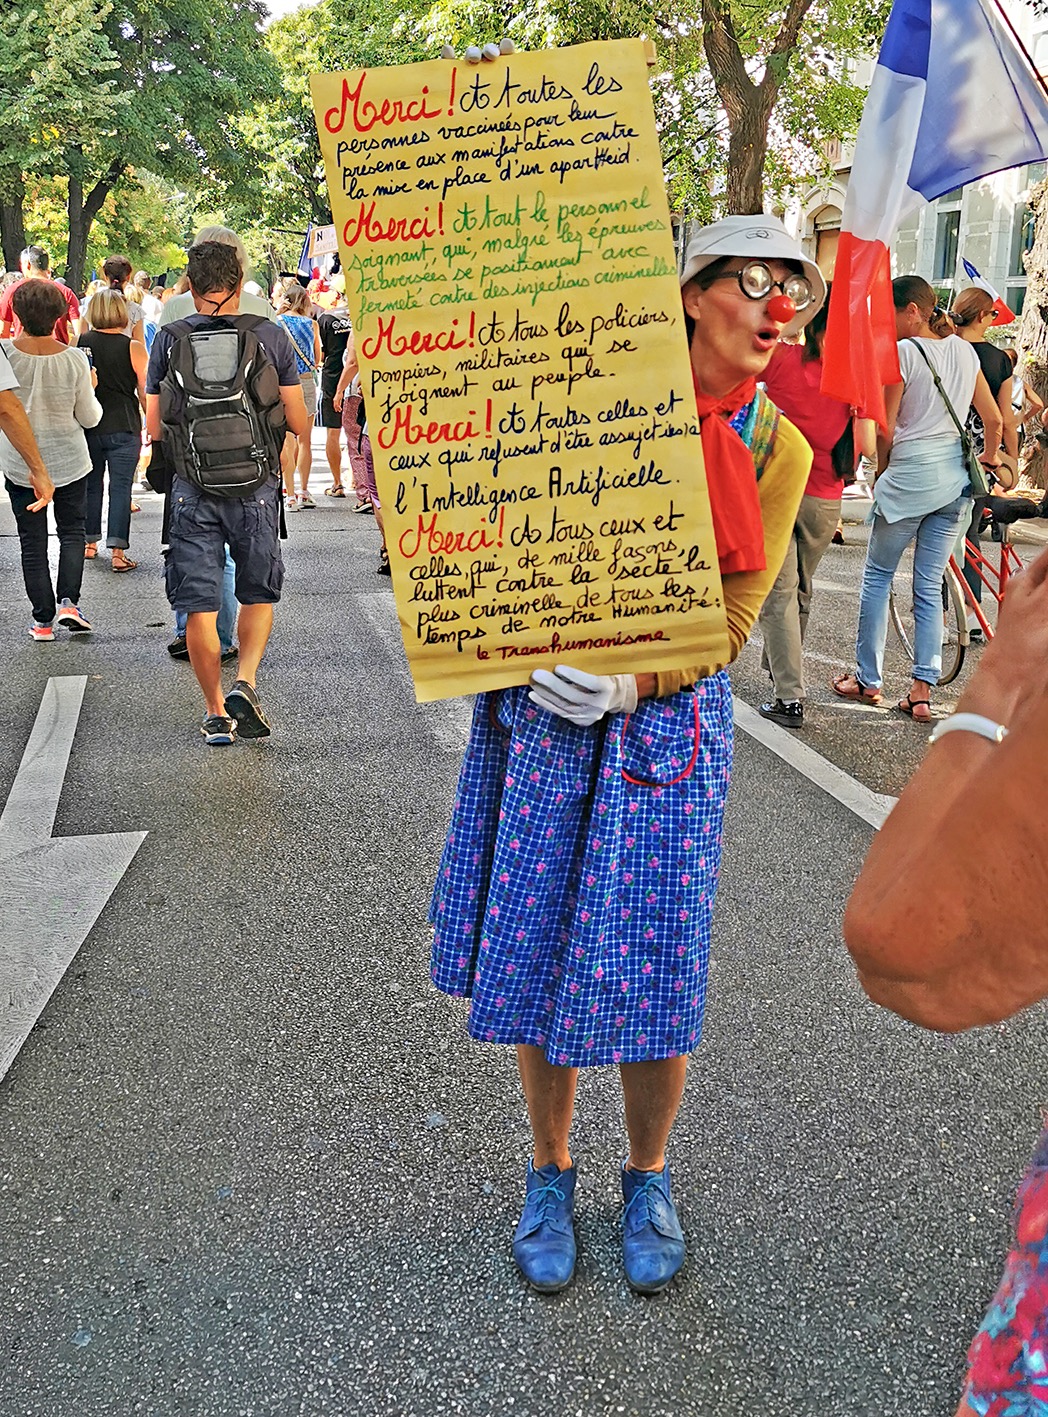 Merci ! A toutes les
personnes vaccinées pour leur
présence aux manifestations contre
la mise en place d'un apartheid.
Merci ! A tout le personnel
soignant, qui, malgré les épreuves
traversées se positionnent avec
fermeté contre des injections criminelles
Merci ! A tous les policiers,
pompiers, militaires qui se
joignent au peuple.
Merci ! A toutes celles et
ceux qui refusent d'être assujet(ies) à
l'Intelligence Artificielle.
Merci ! A tous ceux et
celles, qui, de mille façons,
luttent contre la secte la
plus criminelle de tous les
temps de notre Humanité :
le Transhumanisme